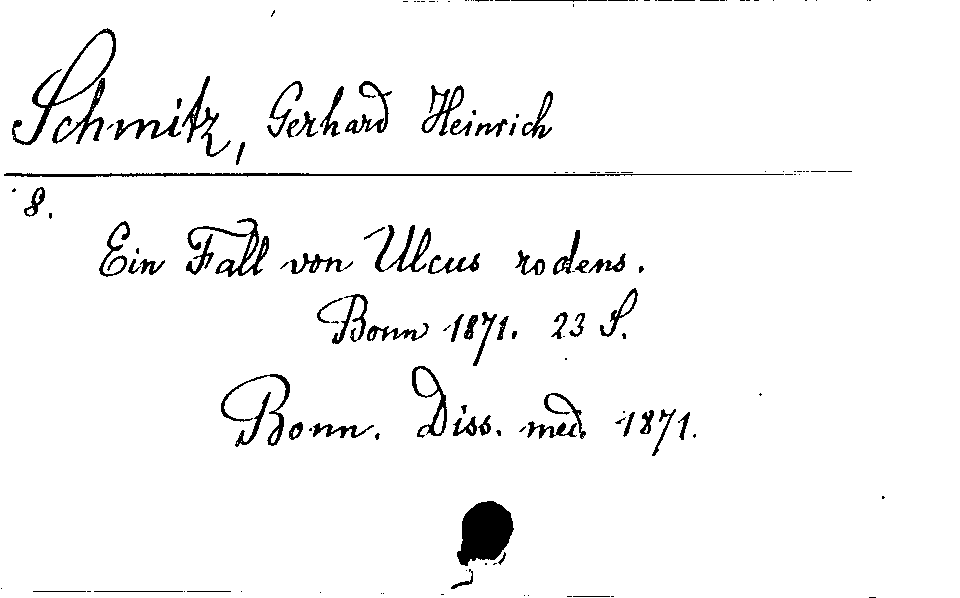 Schmitz, Gerhard Heinrich
8.
Ein Fall von Ulcus rodens.
Bonn 1871. 23 S.
Bonn. Diss. med. 1871.